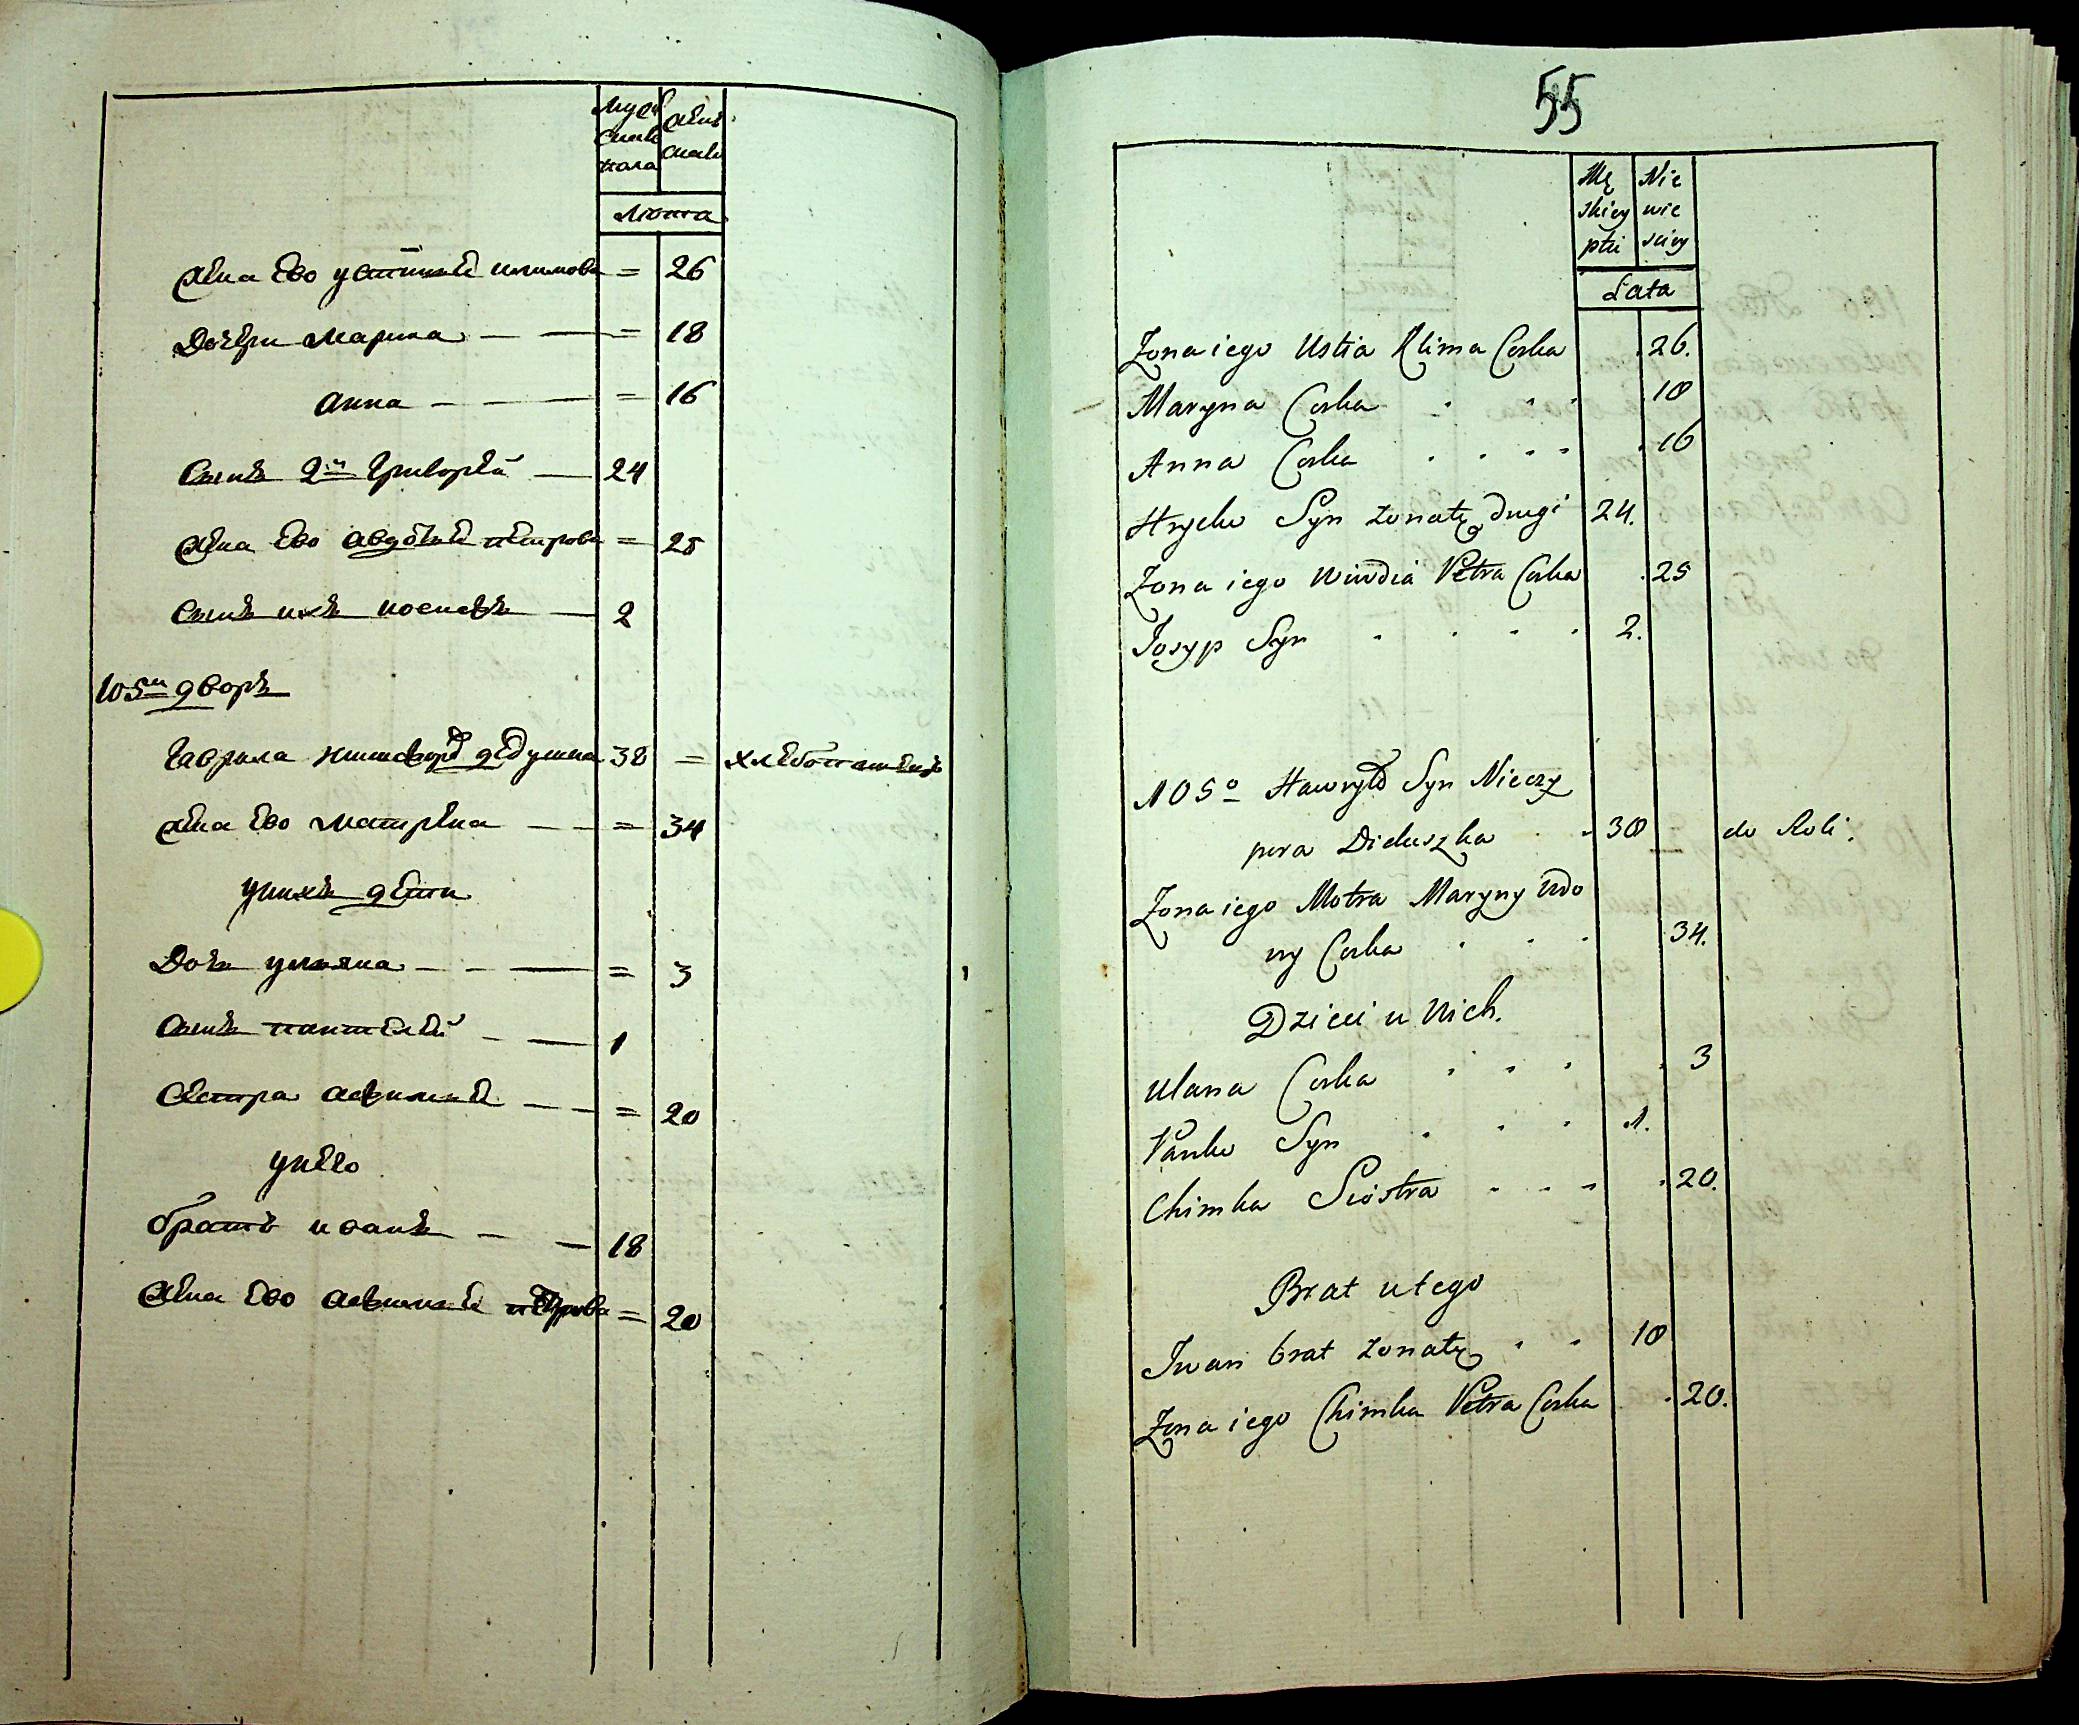 Муже
жен
ска
ска
пола
Лѣта
жена ево устинія климова = 26
дочери марина = 18
анна = 16
сынъ 2й григорей 24
жена ево авдотия петрова = 25
сынъ ихъ иосифъ 2
105й дворъ
гаврила дедушка 38 = хлебопашецъ
жена ево матрена = 34
у них дети
дочь уляна = 3
сынъ пантелей 1
сестра аефимия = 20
у него
братъ иванъ 18
жена ево аефимия петрова = 20
55
Mę Nie
skiey wie
płci sciey
Lata
Zona iego Ustia Klima Corka 26.
Maryna Corka 18
Anna Corka 16
Hryćko Syn zonaty drugi 24.
Zona iego Petra Corka 25
Josyp Syn 2.
105o Hawryło Syn Nieczy
pora Diduszka 38 do Roli.
Zona iego Motra Maryny Wdo
wy Corka 34.
Dzieci u Nich.
Ulana Corka 3
Panko Syn 1.
Chimka Siostra 20.
Brat u tego
Iwan brat zonaty 18
Zona iego Chimka Petra Corka 20.